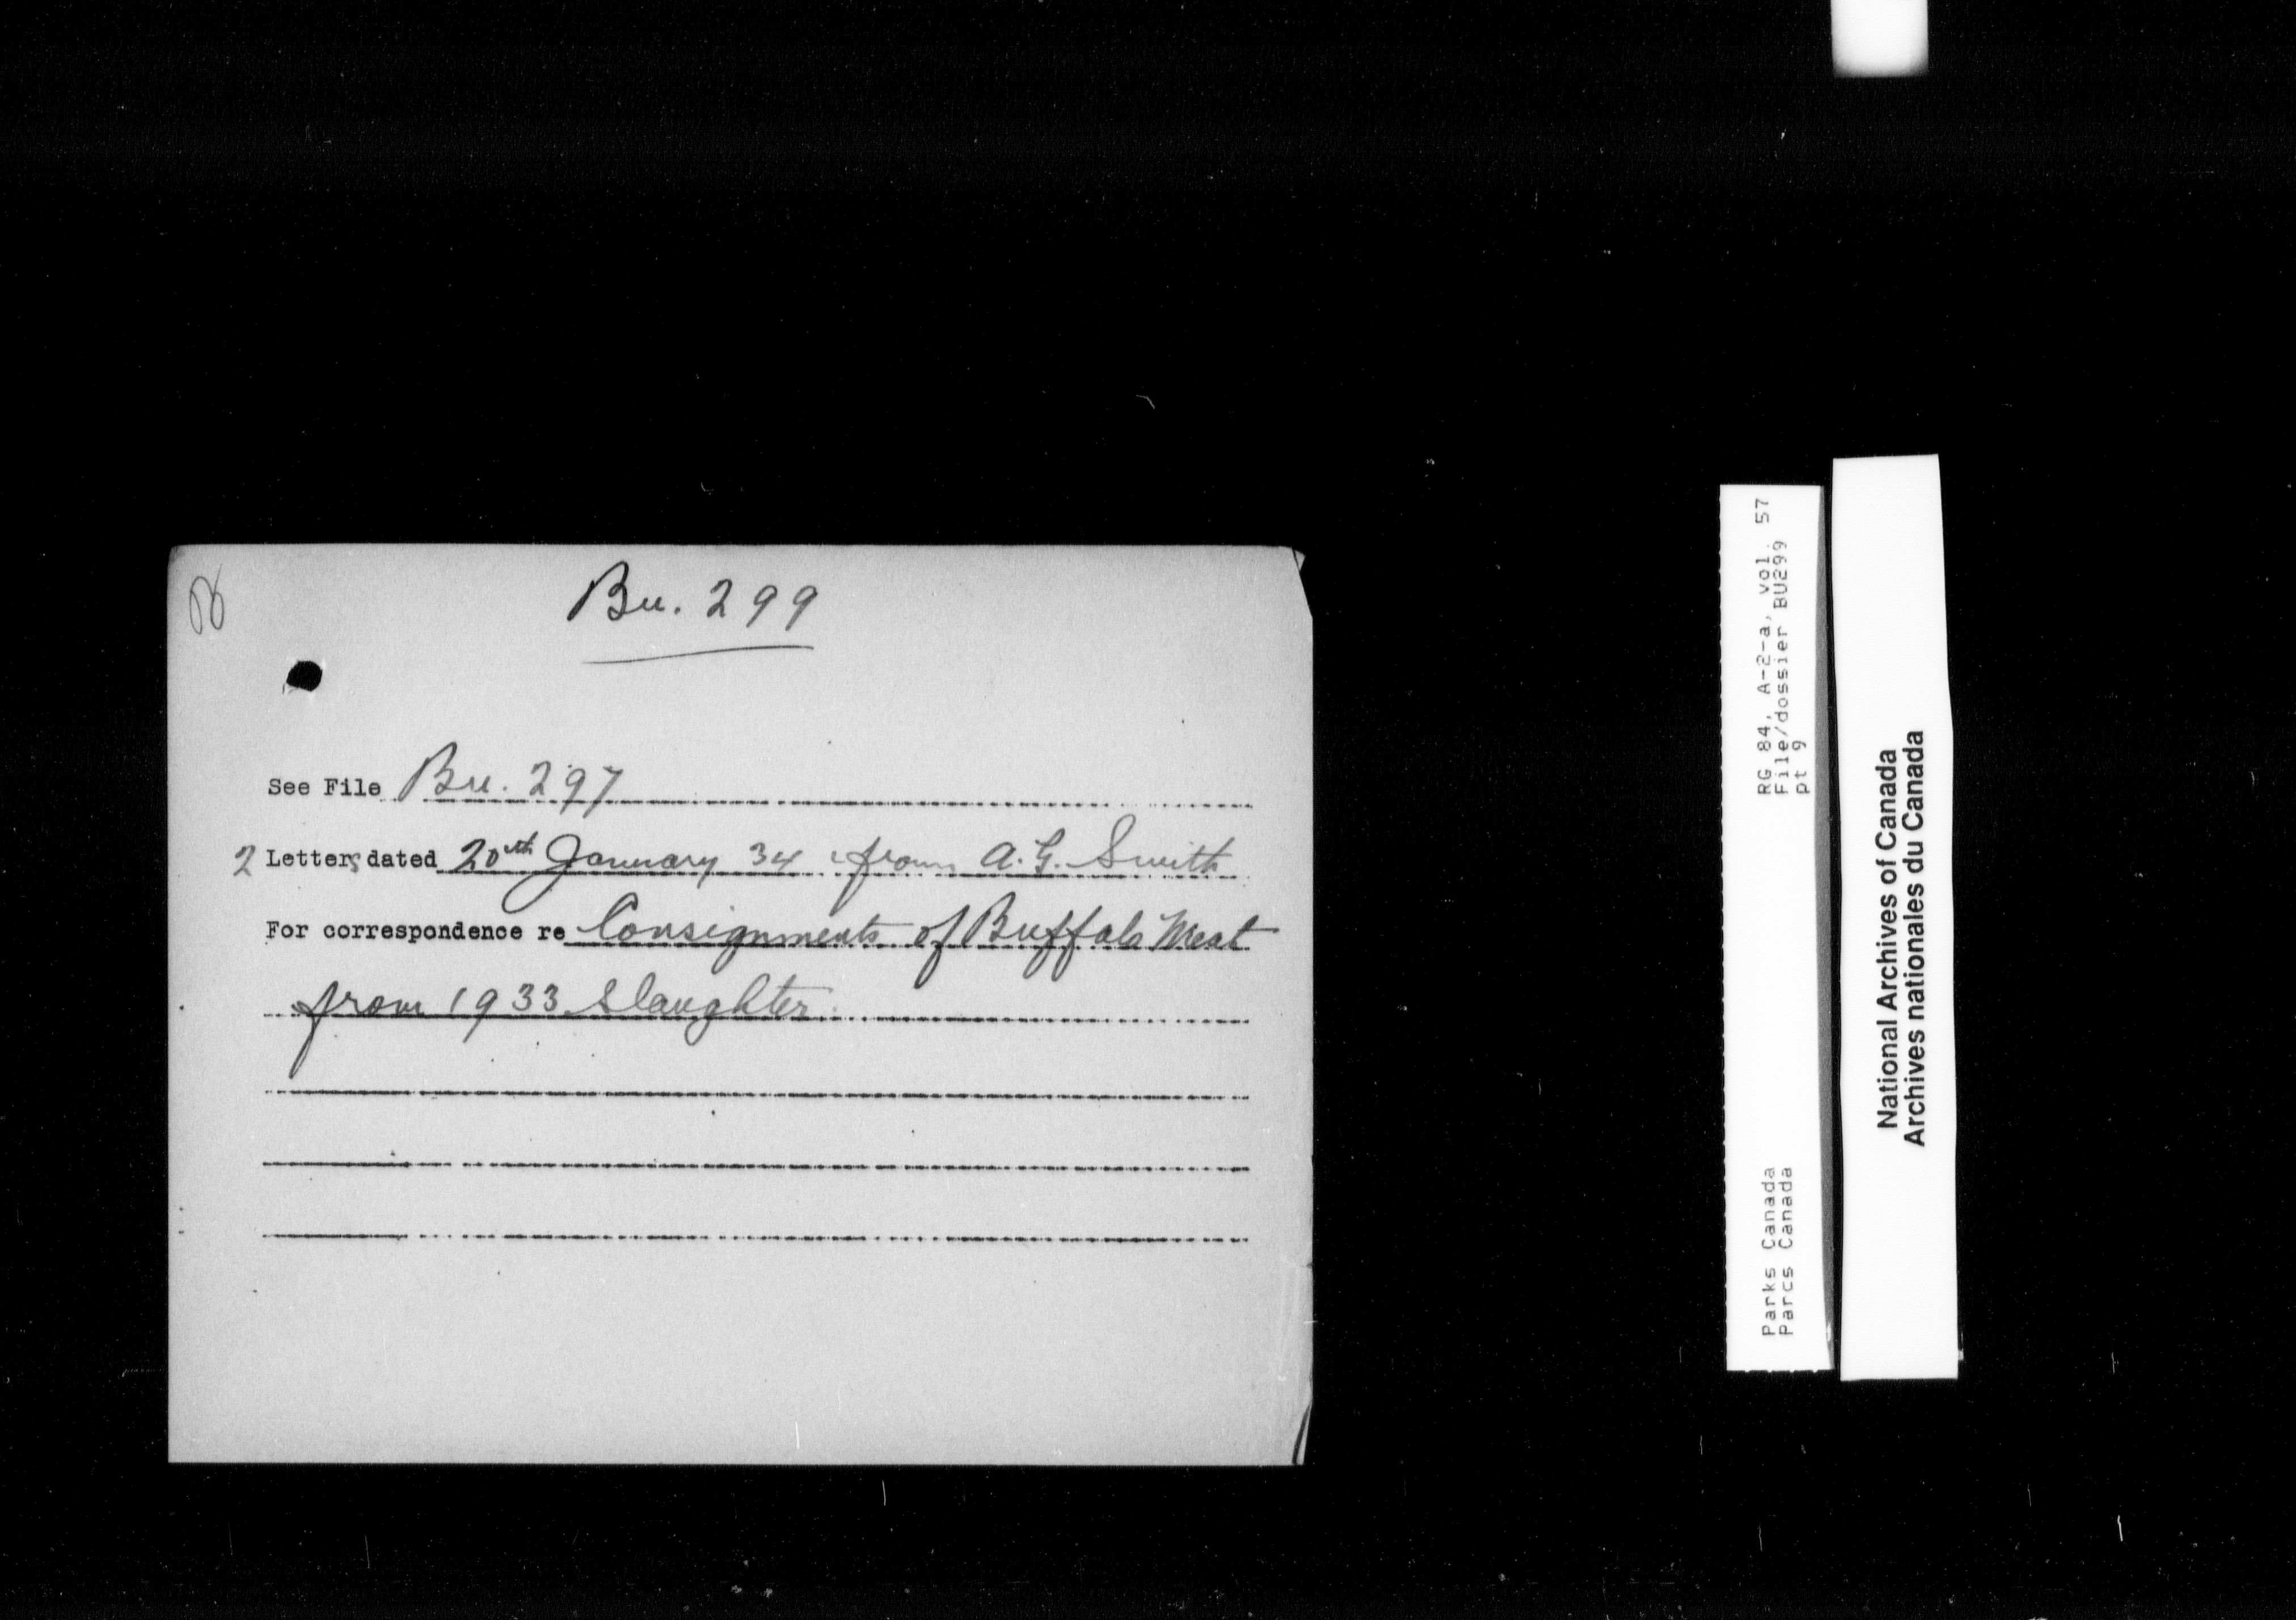 Bu. 299
See File Bu. 297
2 Letters dated 20th January 34 from A. G. Smith
For correspondence re Consignments of Buffalo Meat
from 1933 Slaughter.
RG 84, A-2-a, vol. 57
File/dossier BU299
pt 9
Parks Canada
Parcs Canada
National Archives of Canada
Archives nationales du Canada